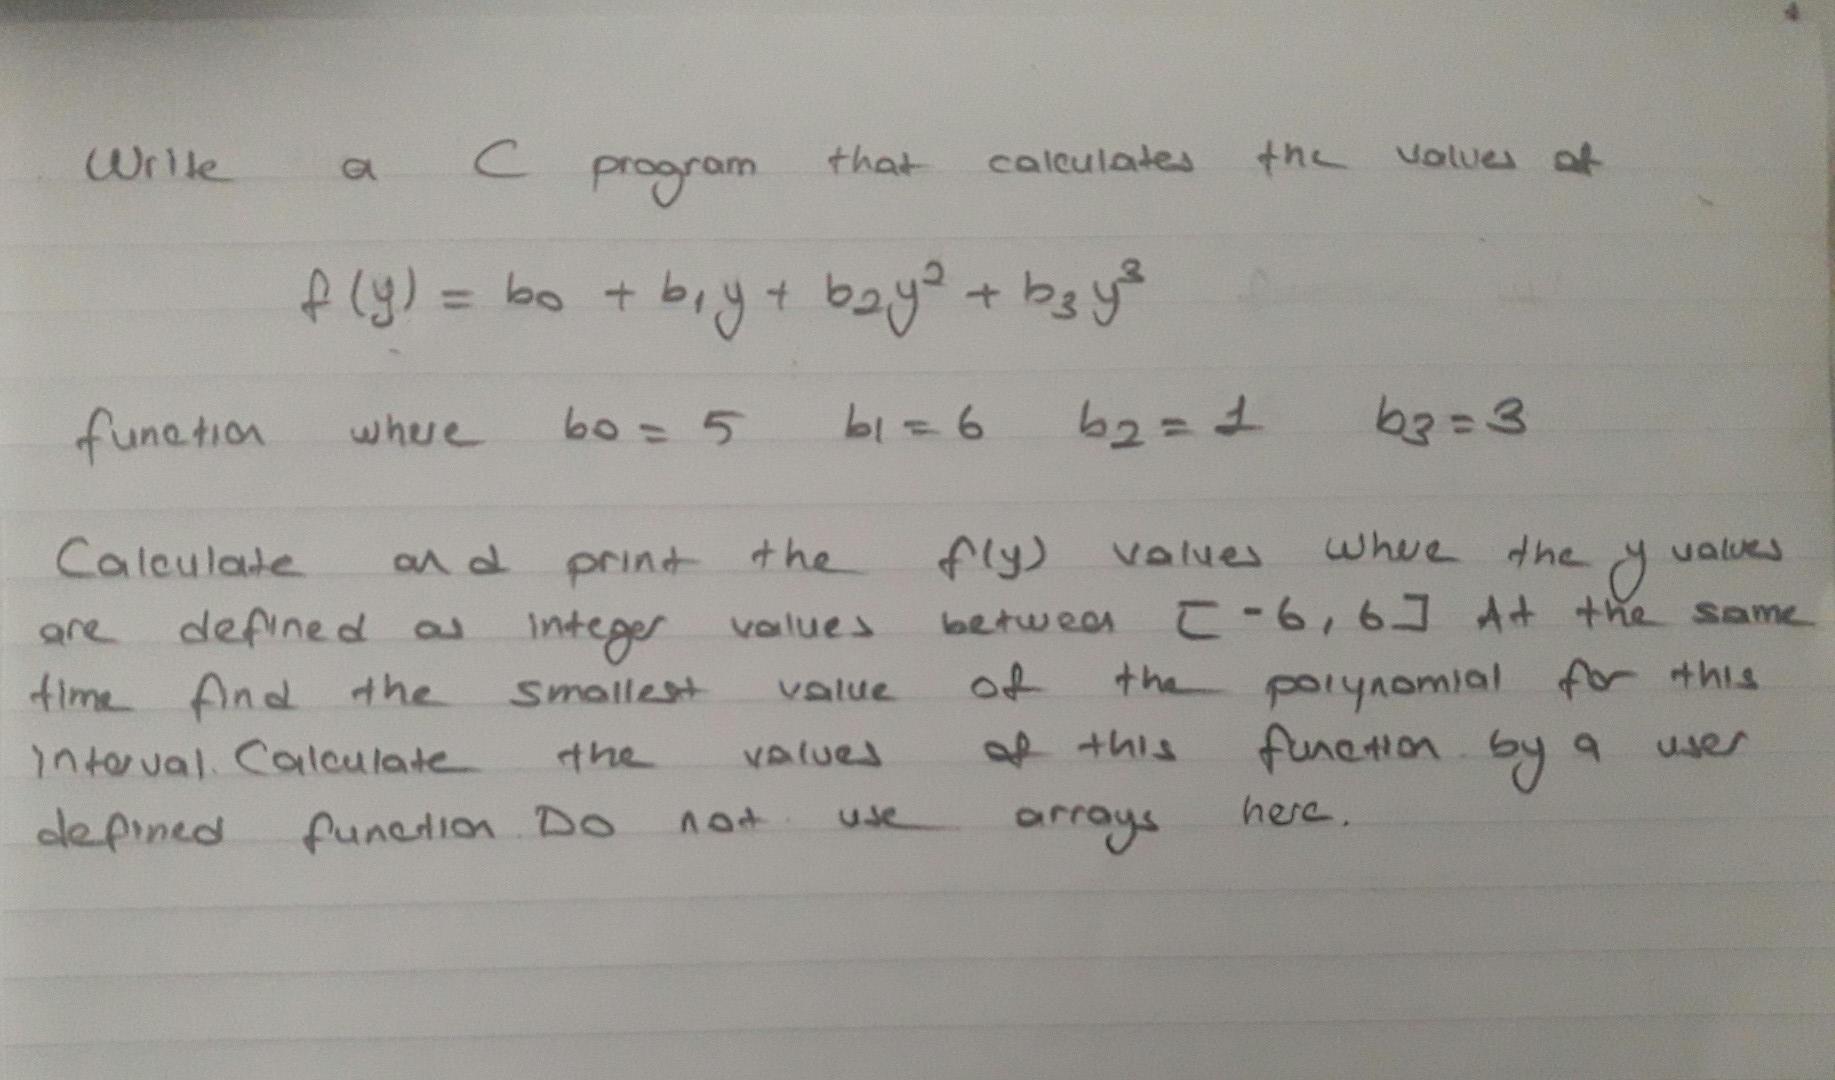 Write a C program that calculates the values of
f(y) = b0 + b1y + b2y² + b3y³
function where b0 = 5 b1 = 6 b2 = 1 b3 = 3
Calculate and print the f(y) values where the y values
are defined as integer values between [-6, 6] At the same
time find the smallest value of the polynomial for this
interval. Calculate the values of this function by a user
defined function. Do not use arrays here.